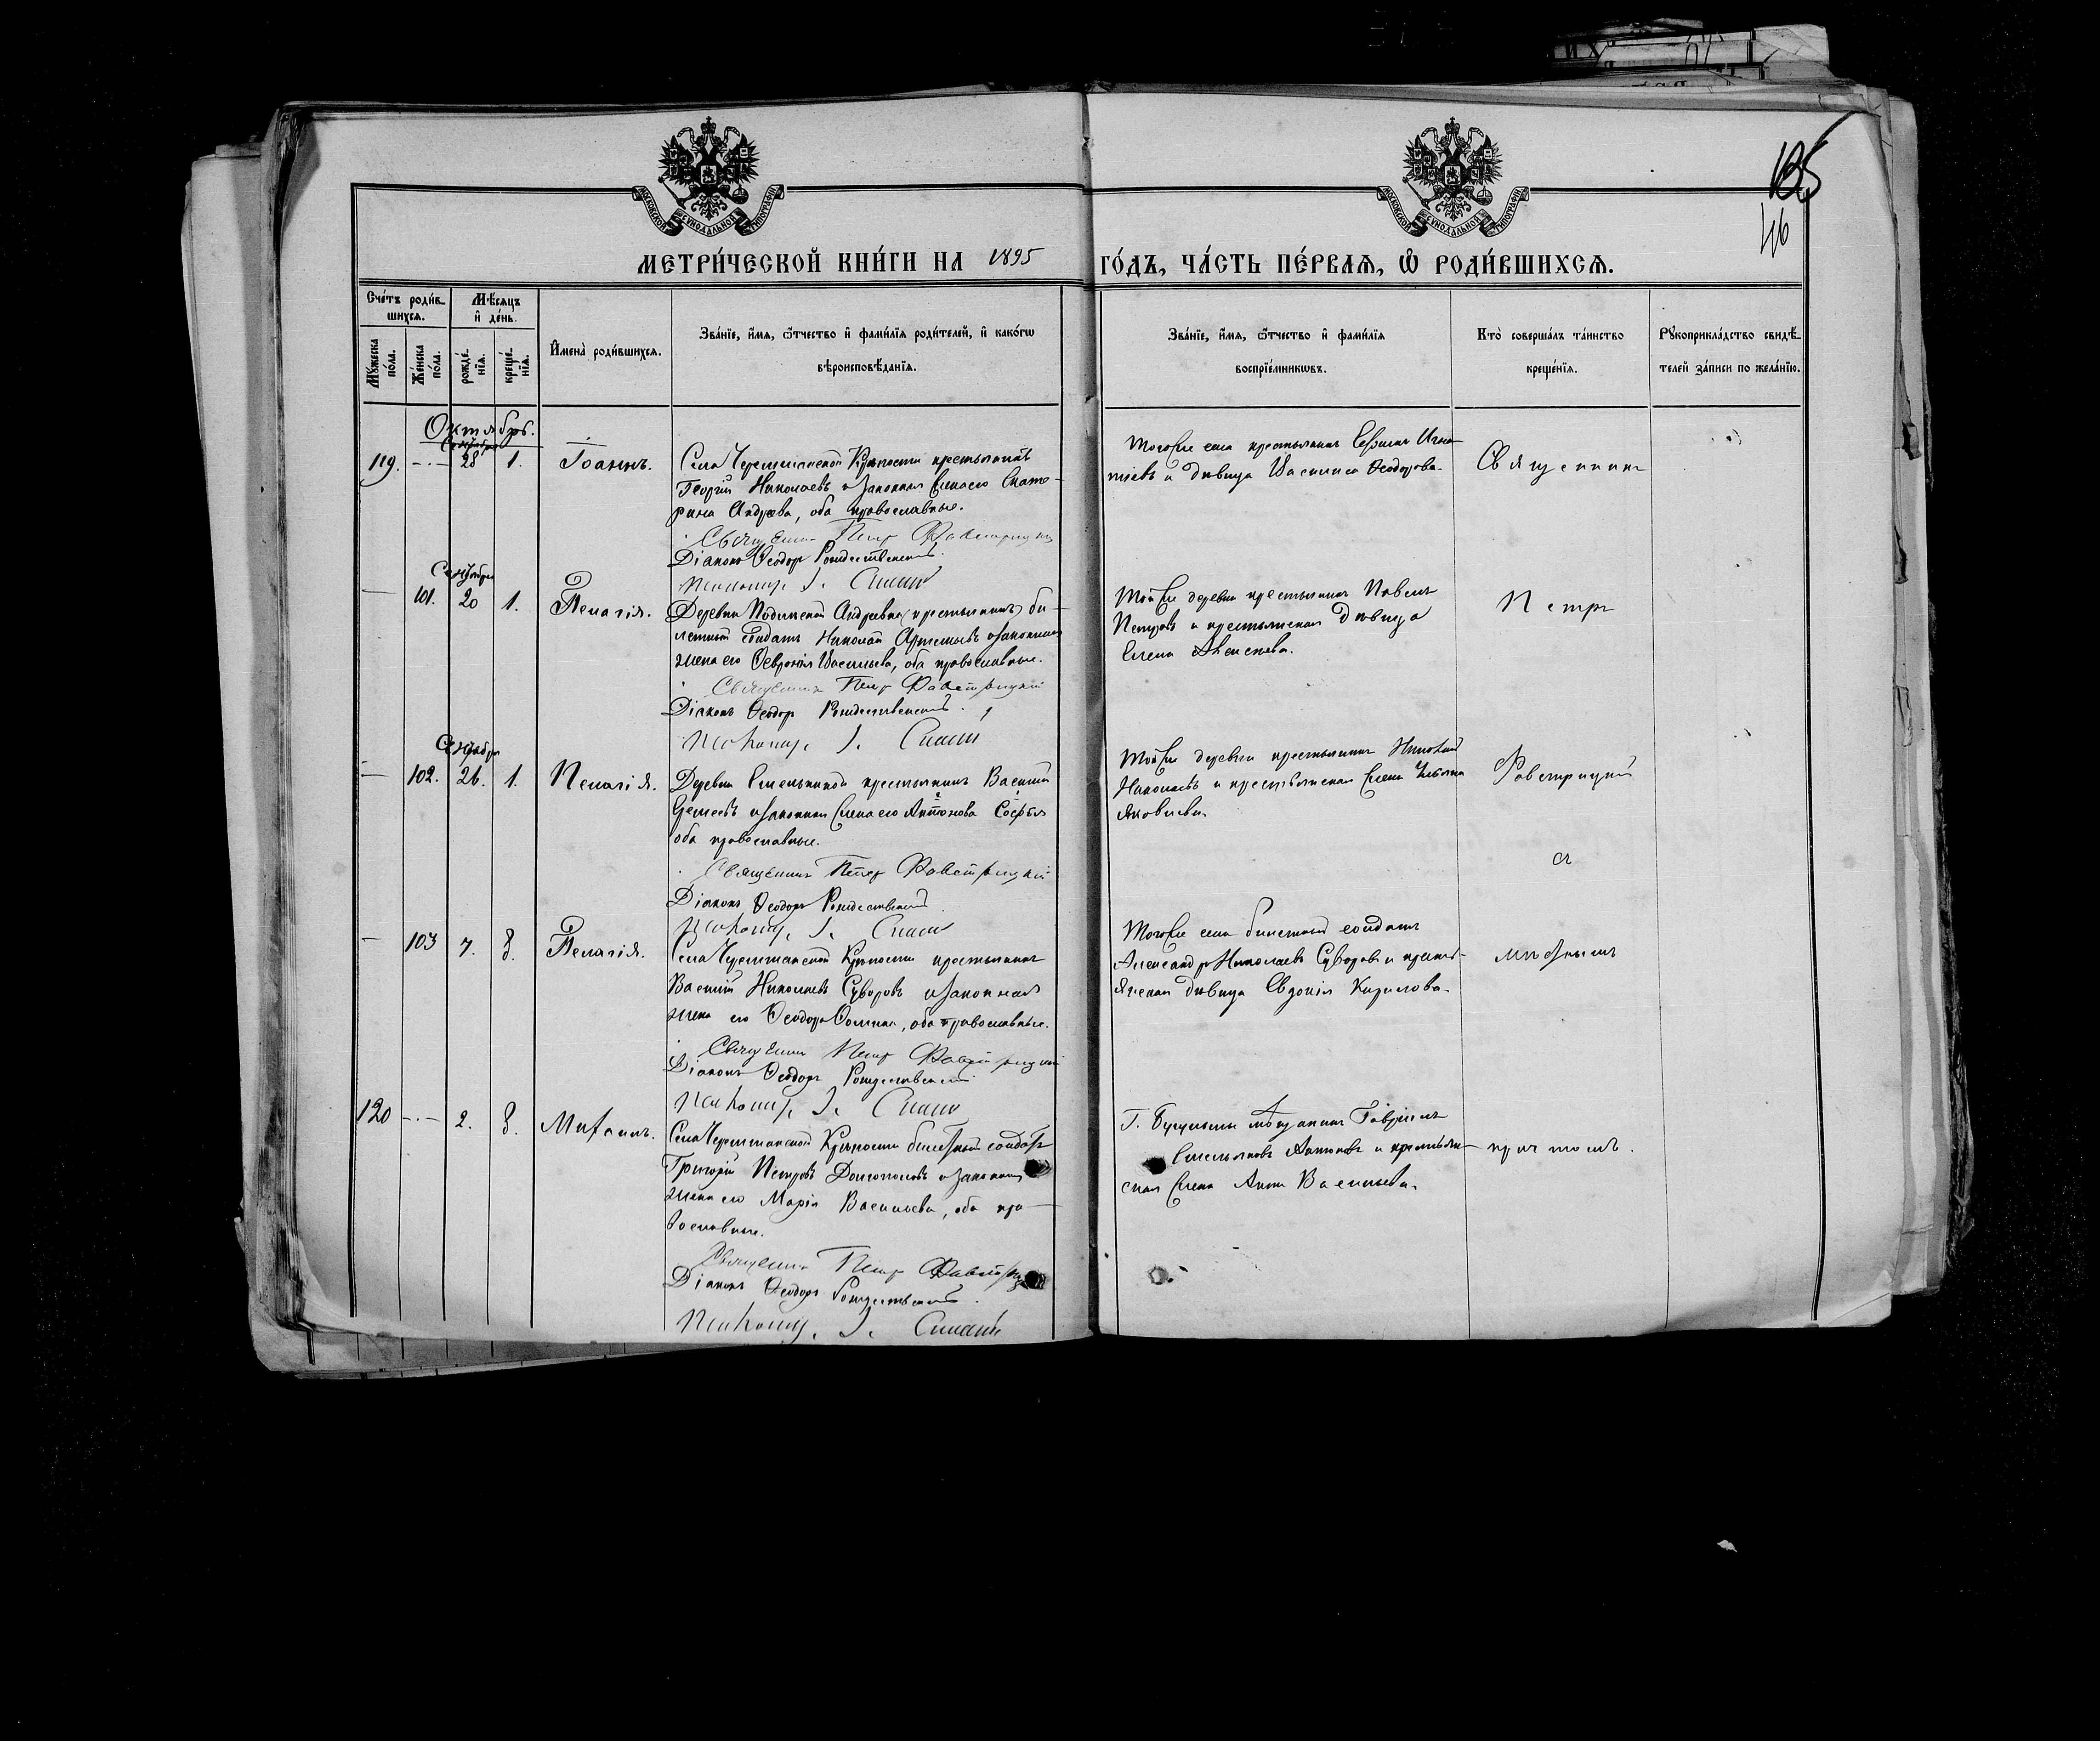 МОСКОВСКОЙ СѴНОДАЛЬНОЙ ТИПОГРАФІИ
МОСКОВСКОЙ СѴНОДАЛЬНОЙ ТИПОГРАФІИ
46
МЕТРИ́ЧЕСКОЙ КНИ́ГИ НА 1895 ГО́ДЪ, ЧА́СТЬ ПЕ́РВАЯ, Ѡ РОДИ́ВШИХСЯ.
Сче́тъ роди́в-
шихся.
Мѣ́сяцъ
и де́нь.
Мꙋ́жеска по́ла.
Же́нска по́ла.
рожде́-нія.
креще́-нія.
Имена̀ роди́вшихся.
Зва́ніе, и́мя, ѻ́тчество и фами́лія роди́телей, и како́гѡ
вѣроисповѣ́данія.
Зва́ніе, и́мя, ѻ́тчество и фами́лія
воспріе́мникѡвъ.
Кто̀ соверша́лъ та́инство
креще́нія.
Рꙋкоприкла́дство свидѣ́-
телей за́писи по жела́нію.
Октябрь.
Сентября
119. 28 1. Іоаннъ.
Села Черемшанской Крѣпости крестьянинъ
Георгій Николаевъ и законная жена его Екате-
рина Андреева, оба православные.
Священникъ Петръ Фавстрицкій
Діаконъ Ѳеодоръ Рождественскій.
Тогоже села крестьянинъ Ефимъ Игна-
тіевъ и дѣвица Василиса Ѳеодорова.
Священникъ
Сентября
101. 20 1. Пелагія.
Деревни Подлѣсной Андреевки (крестьянинъ) би-
летный солдатъ Николай Артемьевъ и законная
жена его Февронія Васильева, оба православные.
Священникъ Петръ Фавстрицкій
Діаконъ Ѳеодоръ Рождественскій.
Тойже деревни крестьянинъ Павелъ
Петровъ и крестьянская дѣвица
Елена Алексѣева.
Петръ
Сентября
102. 26. 1. Пелагія.
Деревни Емелькиной крестьянинъ Василій
и законная жена его Антонова Софья
оба православные.
Священникъ Петръ Фавстрицкій
Діаконъ Ѳеодоръ Рождественскій.
Тойже деревни крестьянинъ Николай
Николаевъ и крестьянская жена
Яковлева.
Фавстрицкій
съ
103 7. 8. Пелагія.
Села Черемшанской Крѣпости крестьянинъ
Василій Николаевъ Суворовъ и законная
жена его Ѳеодора Ѳомина, оба православные.
Священникъ Петръ Фавстрицкій
Діаконъ Ѳеодоръ Рождественскій
Тогоже села билетный солдатъ
Александръ Николаевъ Суворовъ и кресть-
янская дѣвица Евдокія Кирилова.
мѣстнымъ
120 2. 8.
Села Черемшанской Крѣпости билетный солдатъ
Григорій Петровъ Долгополовъ и законная
жена его Марія Васильева, оба пра-
вославные.
Священникъ Петръ Фавстрицкій
Діаконъ Ѳеодоръ Рождественскій.
Г. Бугульмы мѣщанинъ Гавріилъ
Емельяновъ Антоновъ и крестьян-
ская жена Анна Васильева.
причтомъ.